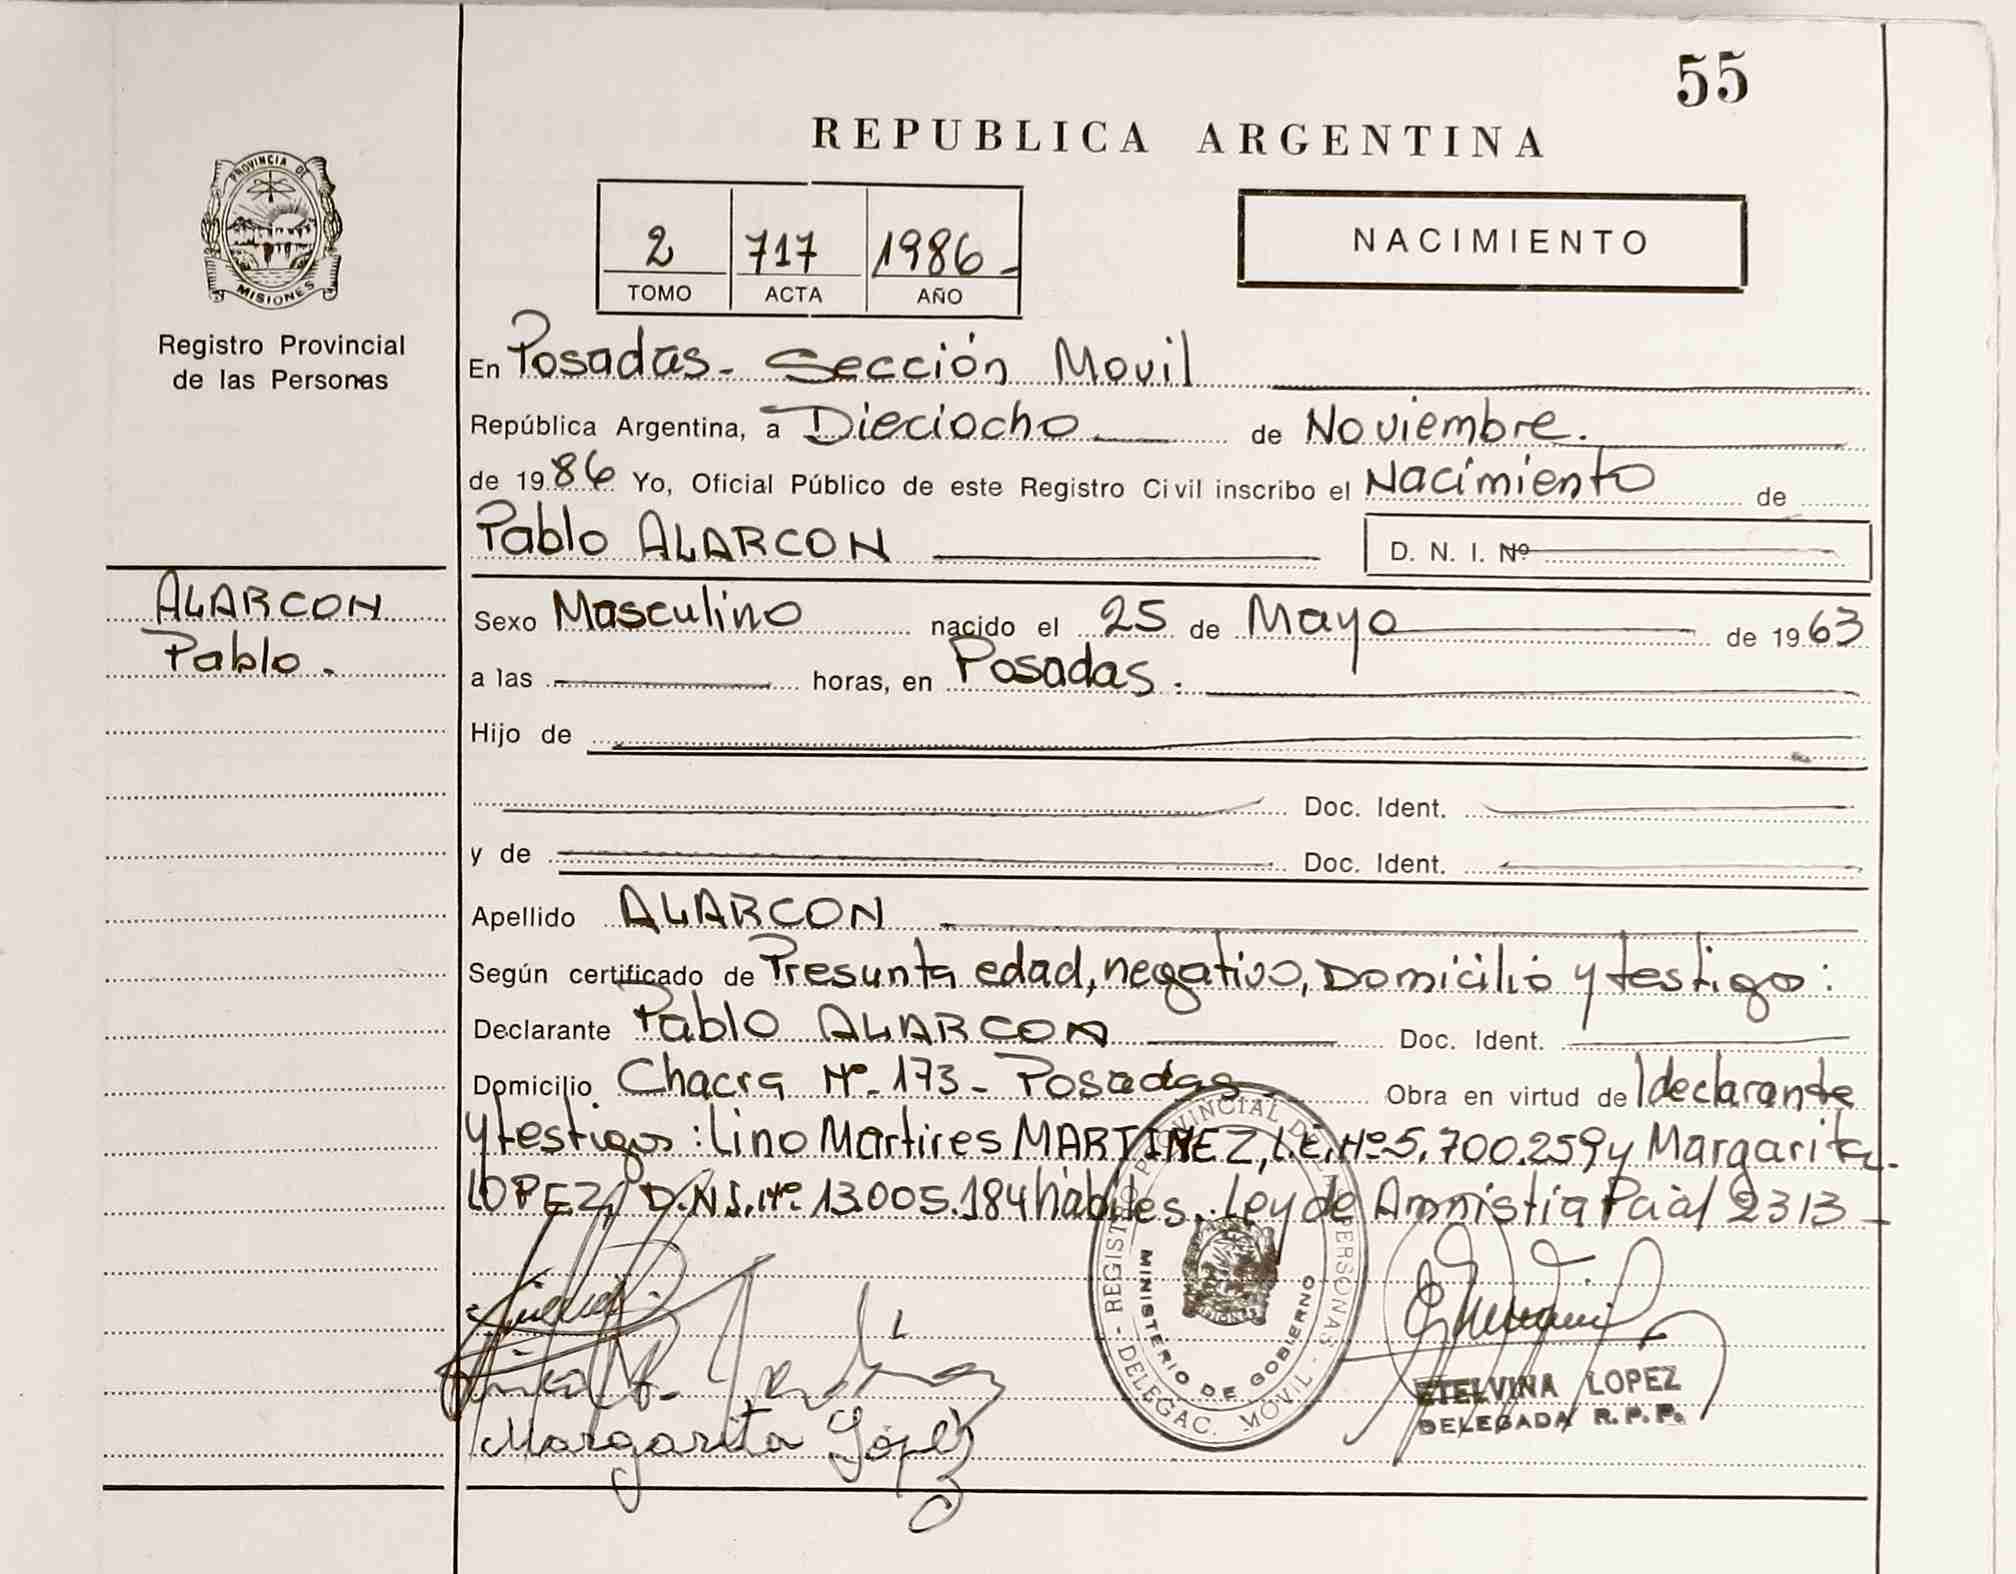 55
REPUBLICA ARGENTINA
PROVINCIA DE
MISIONES
Registro Provincial
de las Personas
2 717 1986
TOMO ACTA AÑO
NACIMIENTO
En Posadas - Sección Movil
República Argentina, a Dieciocho de Noviembre.
de 1986 Yo, Oficial Público de este Registro Civil inscribo el Nacimiento de
Pablo ALARCON D. N. I. Nº
ALARCON
Pablo.
Sexo Masculino nacido el 25 de Mayo de 1963
a las horas, en Posadas.
Hijo de
Doc. Ident.
y de Doc. Ident.
Apellido ALARCON
Según certificado de Presunta edad, negativo, Domicilio y testigo:
Declarante Pablo ALARCON Doc. Ident.
Domicilio Chacra Nº- 173 - Posadas Obra en virtud de declarante
y testigos: Lino Martires MARTINEZ, L.E. Nº 5.700.259 y Margarita
LOPEZ, D.N.I. Nº 13.005.184 hábiles. Ley de Amnistia 2313
REGISTRO PROVINCIAL DE LAS PERSONAS - DELEGAC. MÓVIL -
MINISTERIO DE GOBIERNO
Margarita López
ETELVINA LOPEZ
DELEGADA R. P. P.